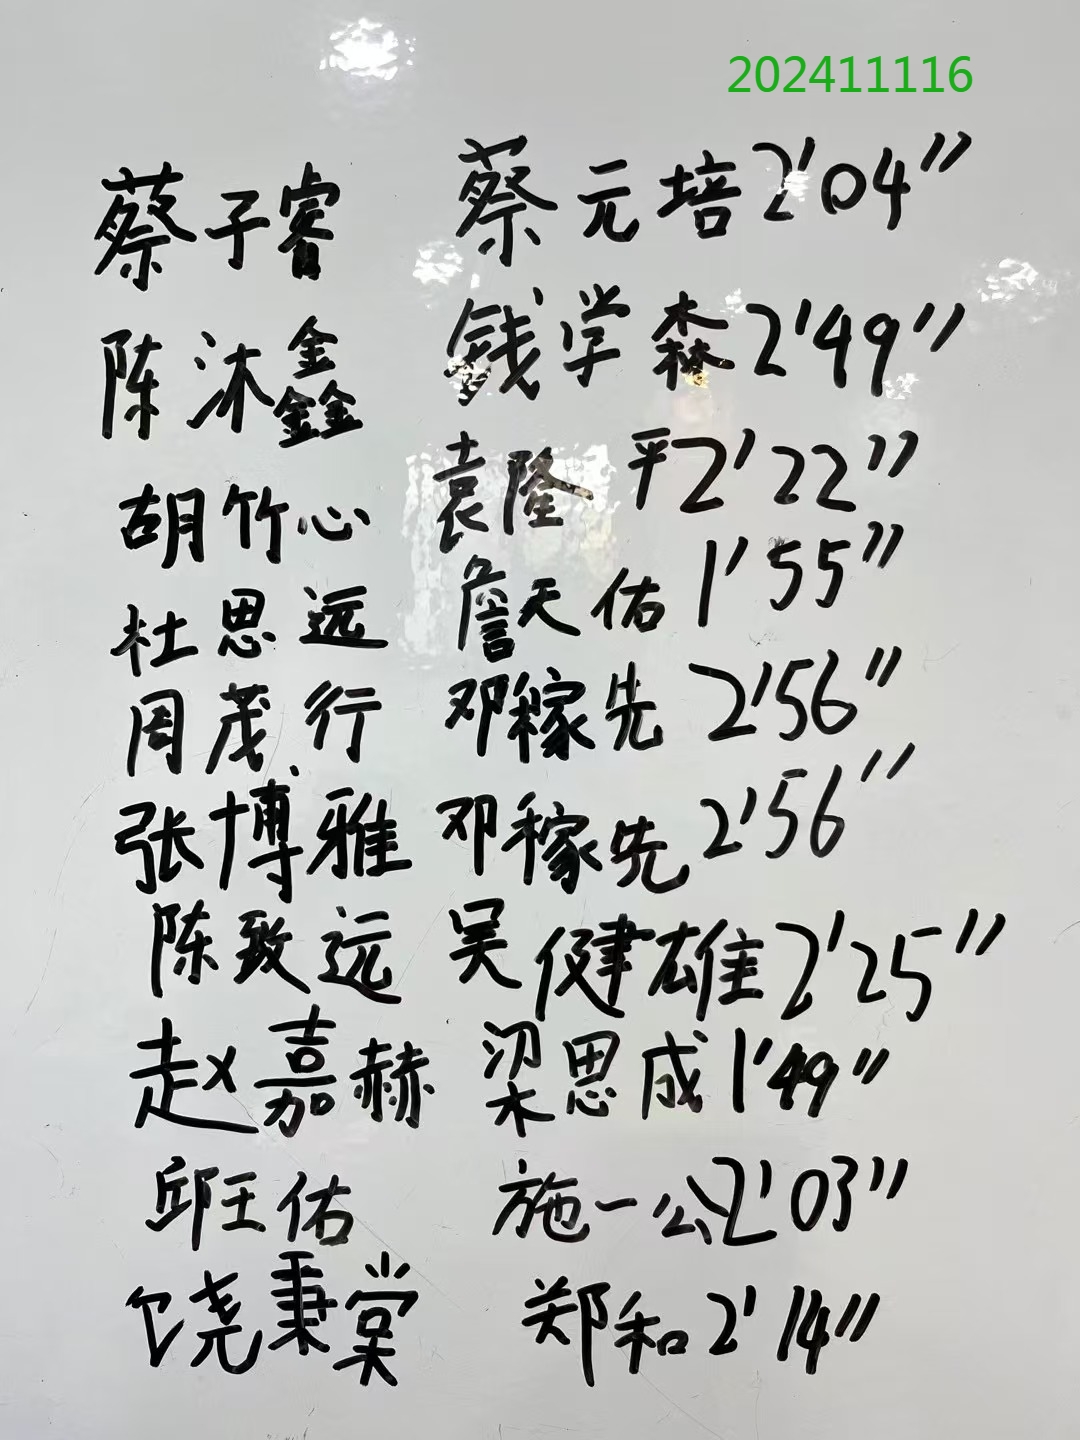 202411116
蔡子睿 蔡元培 2'04"
陈沐鑫 钱学森 2'49"
胡竹心 袁隆平 2'22"
杜思远 詹天佑 1'55"
周茂行 邓稼先 2'56"
张博雅 邓稼先 2'56"
陈致远 吴健雄 2'25"
赵嘉赫 梁思成 1'49"
邱王佑 施一公 2'03"
饶秉棠 郑和 2'14"